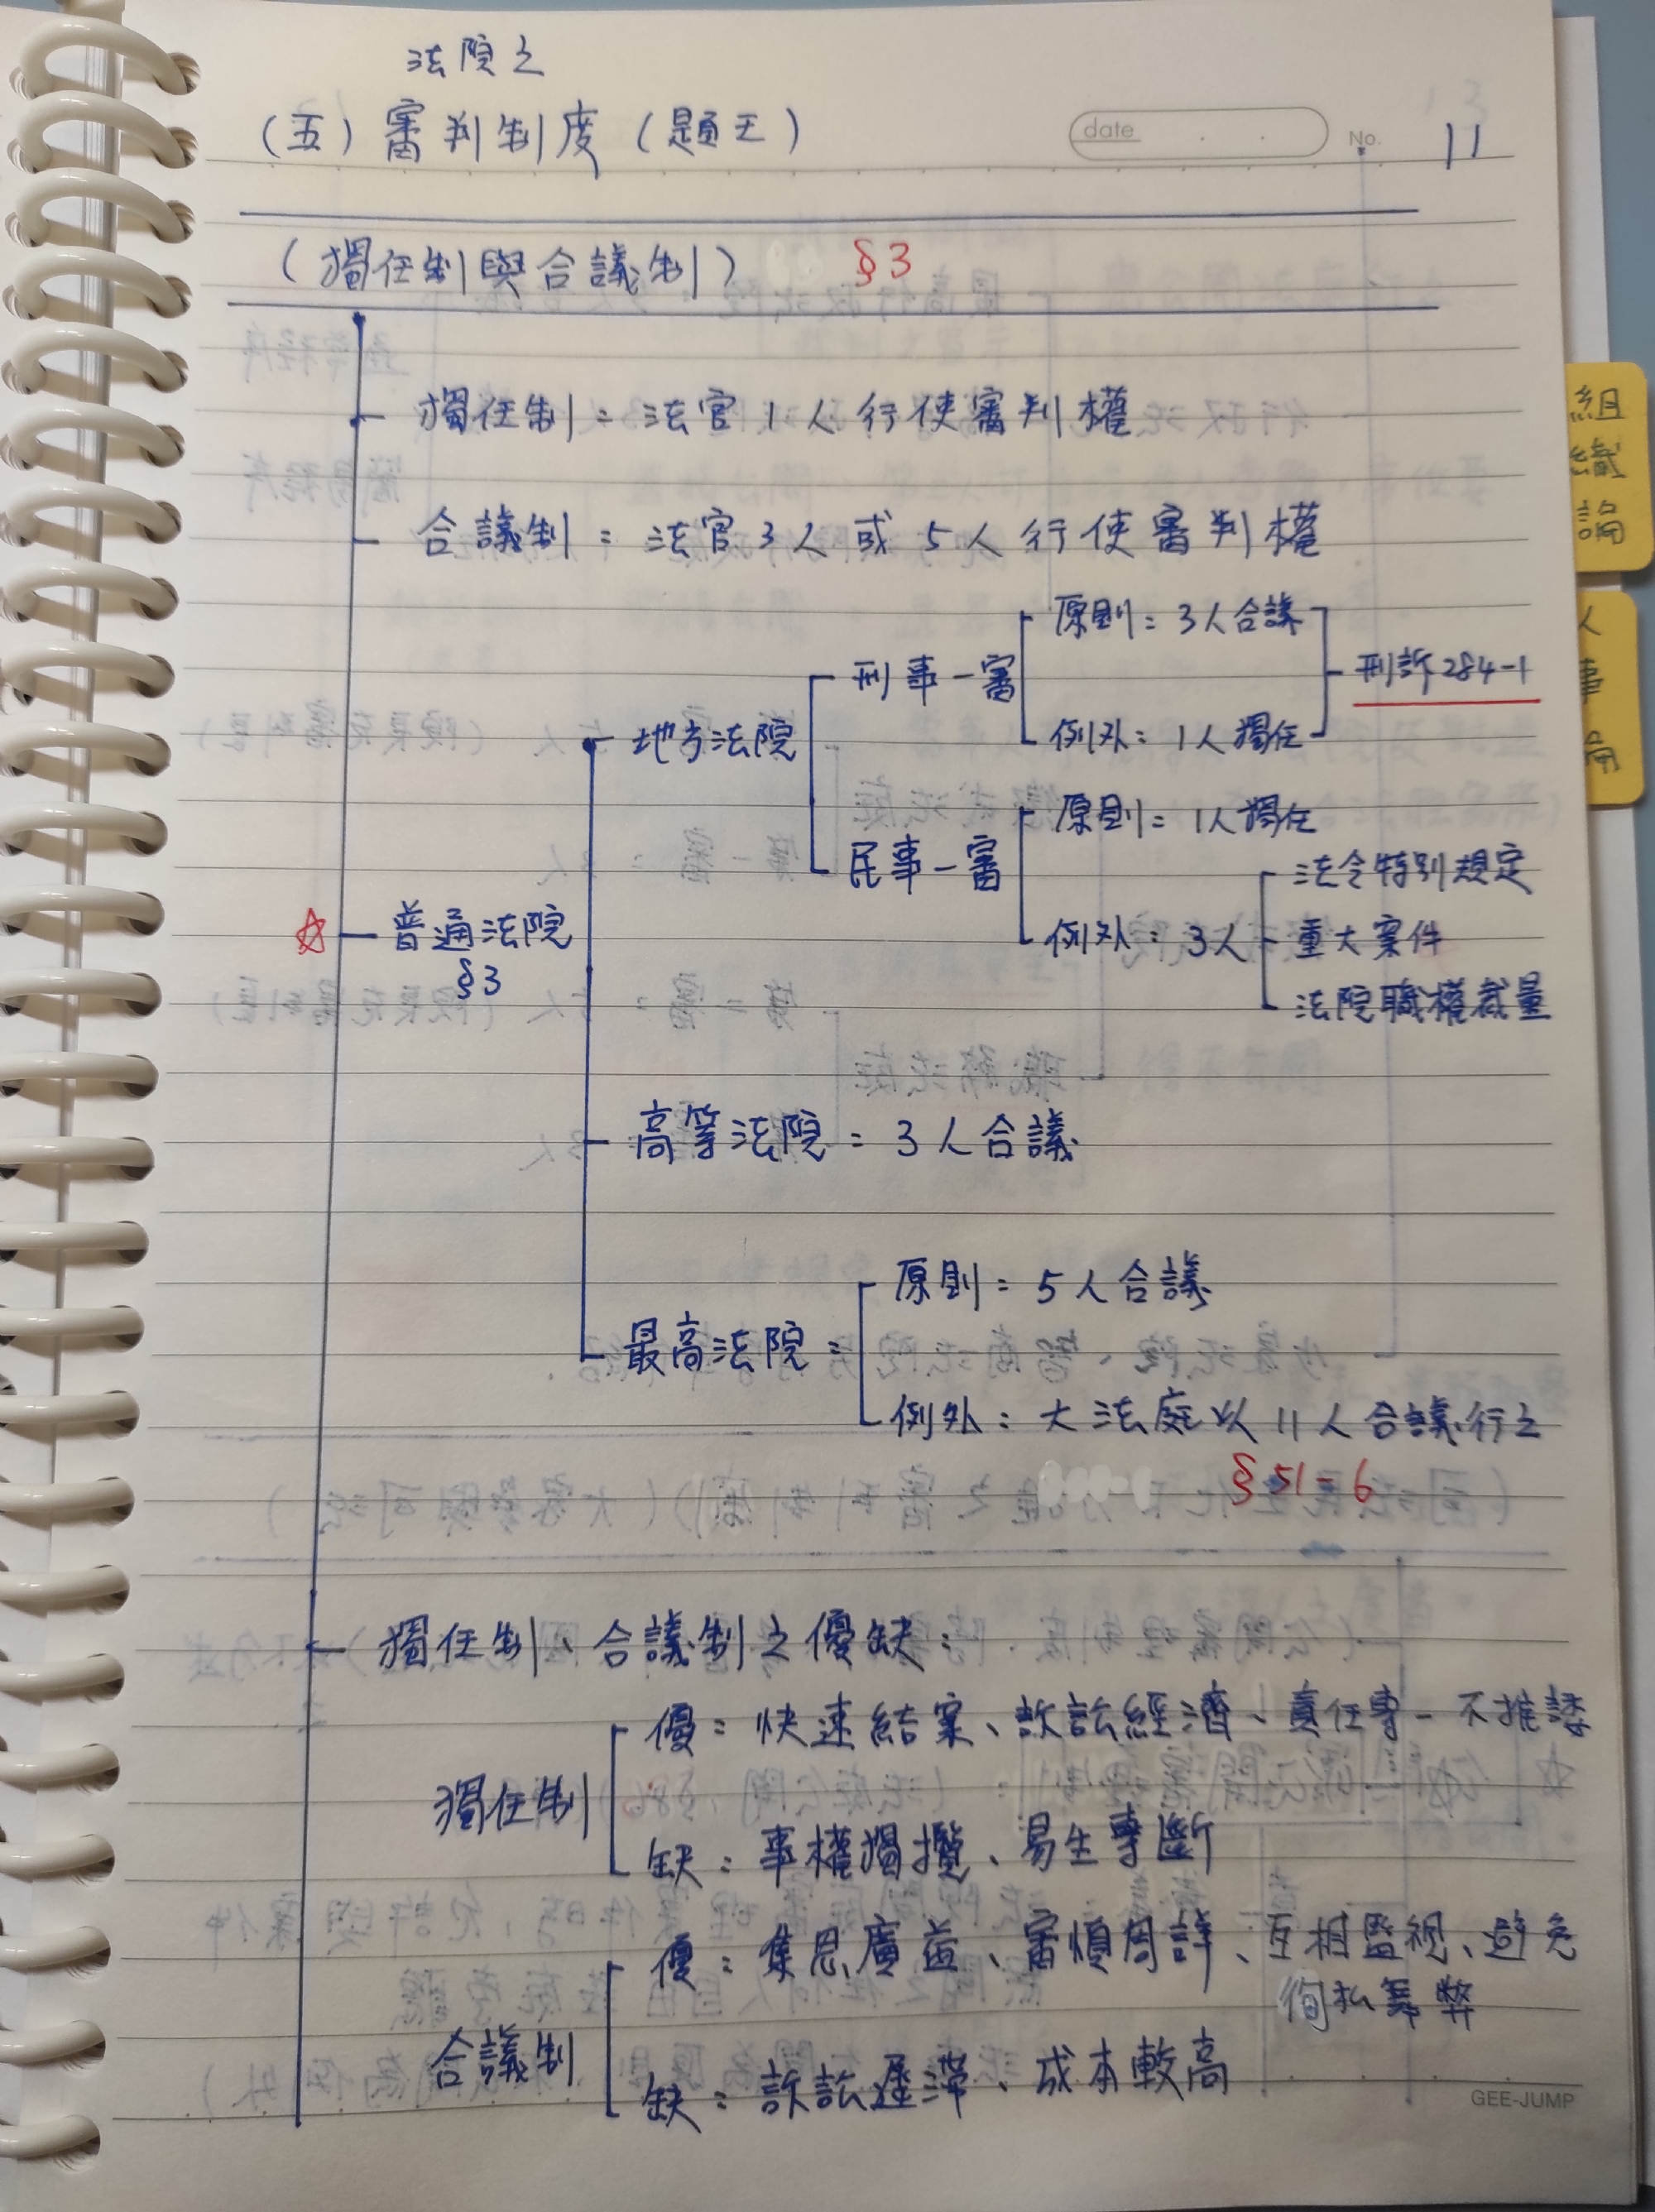 法院之
(五)審判制度(題王)
date
No. 11
(獨任制與合議制) §3
獨任制:法官1人行使審判權
合議制:法官3人或5人行使審判權
原則:3人合議
刑事一審
刑訴284-1
例外:1人獨任
地方法院
原則:1人獨任
民事一審
法令特別規定
例外:3人
重大案件
法院職權裁量
☆普通法院
§3
高等法院:3人合議
原則:5人合議
最高法院:
例外:大法庭以11人合議行之
§51-6
獨任制、合議制之優缺:
優:快速結案、訴訟經濟、責任專一不推諉
獨任制
缺:事權獨攬、易生專斷
優:集思廣益、審慎周詳、互相監視、避免
徇私舞弊
合議制
缺:訴訟遲滯、成本較高
GEE-JUMP
組
織
論
人
事